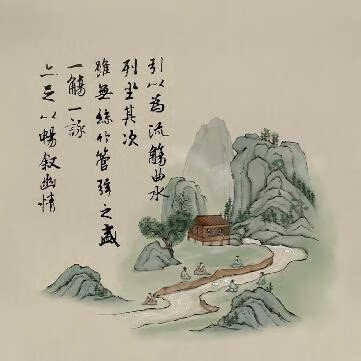 引以為流觴曲水
列坐其次
雖無絲竹管弦之盛
一觴一詠
亦足以暢敘幽情